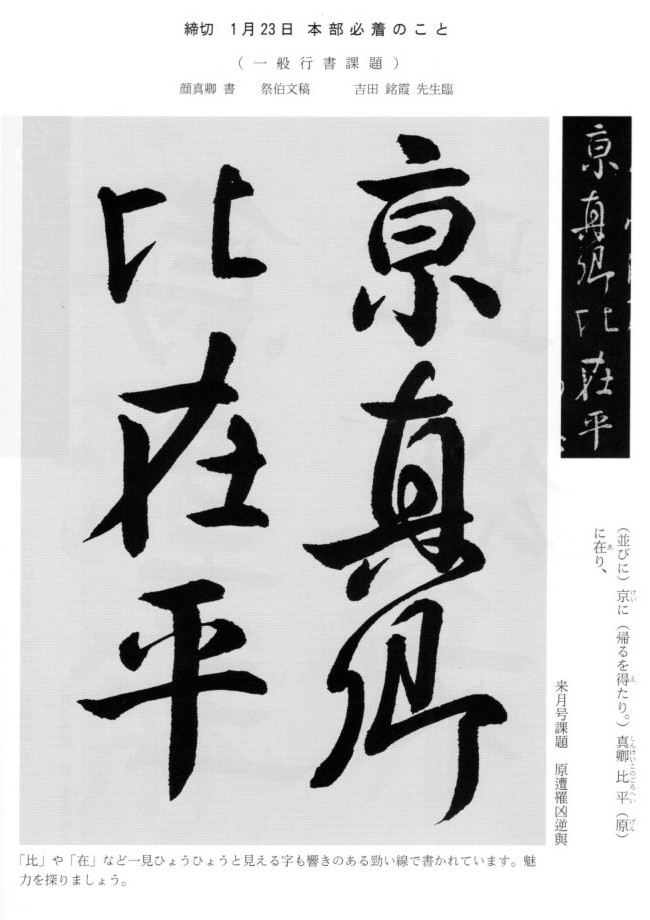 締切 1月23日 本部必着のこと
（一般行書課題）
顔真卿 書 祭伯文稿 吉田 銘霞 先生臨
京真卿
比在平
京真卿比在平
（並びに）京に（帰るを得たり。）真卿 比 平（原）
けい え しんけい このごろ へい げん
に在り、
あ
来月号課題 原遭罹凶逆與
「比」や「在」など一見ひょうひょうと見える字も響きのある勁い線で書かれています。魅
力を探りましょう。